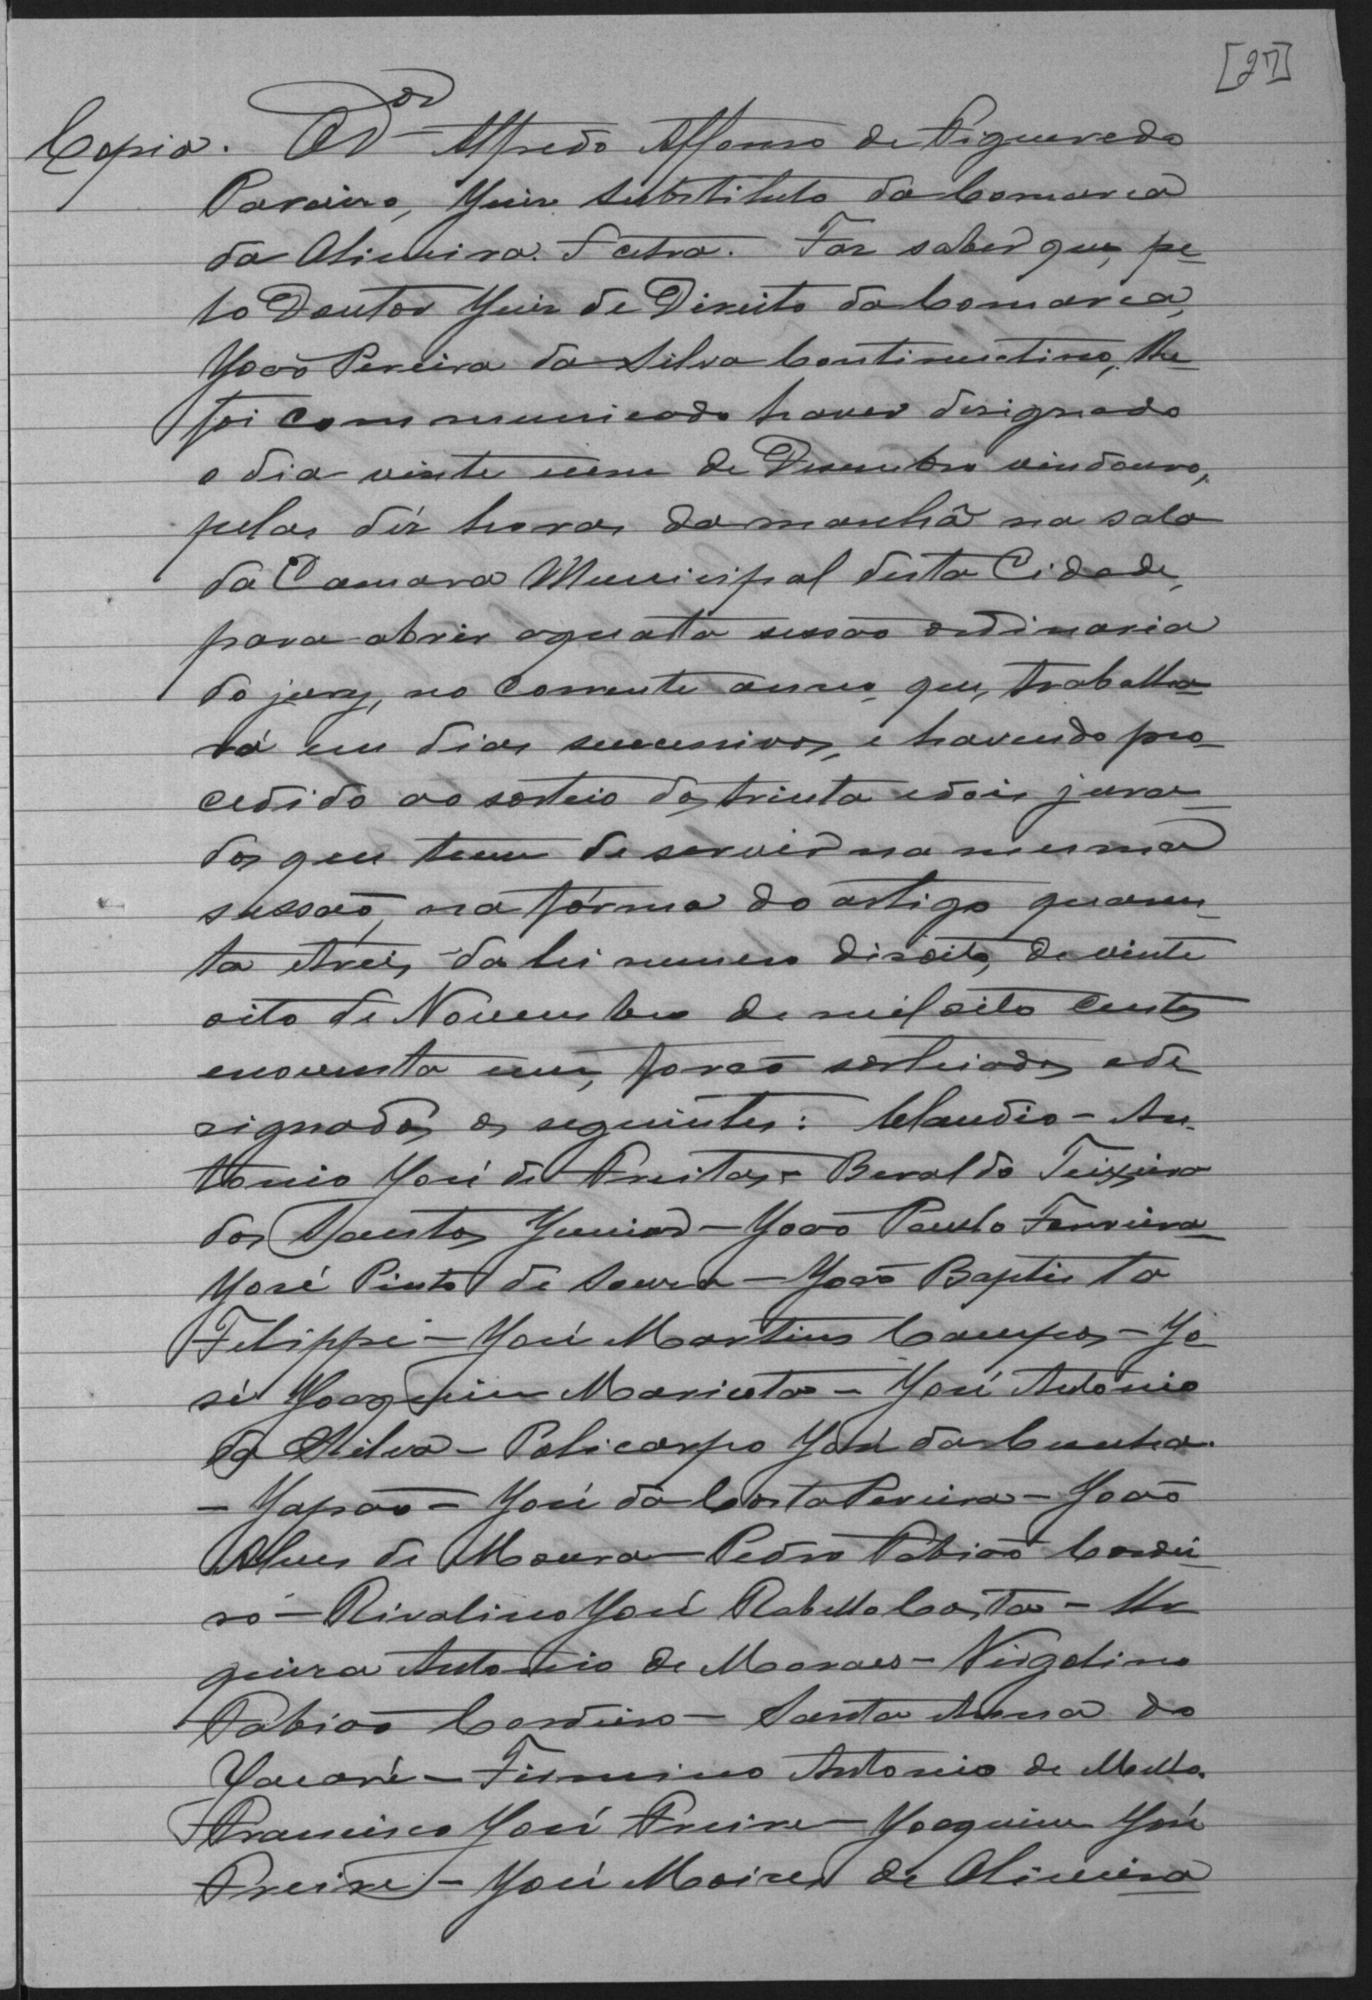 [27]
Copia. O Dor Alfredo Affonso de Figueredo
Paraiso, Juiz substituto da Comarca
da Oliveira. Et cetra. Faz saber que, pe-
lo Doutor Juiz de Direito da Comarca,
João Pereira da Silva Continentino, lhe
foi communicado haver designado
o dia vinte um de Desembro vindouro,
pelas déz horas da manhã na sala
da Camara Municipal desta Cidade,
para abrir a quarta sessão ordinaria
do jury, no corrente anno, que, trabalha-
rá em dias successivos, e havendo pro-
cedido ao sorteio dos trinta e dois jura-
dos que teem de servir na mesma
sessão, na fórma do artigo quaren-
ta e tres, da lei numero disoito, de vinte
oito de Novembro de mil oito centos
e noventa um, forão sorteiados e de-
signados os seguintes: Claudio - An-
tonio José de Freitas - Beraldo Teixeira
dos Santos Junior - João Paulo Ferreira -
José Pinto de Souza - João Baptista
Felippe - José Martins Campos - Jo-
sé Joaquim Maricota - José Antonio
da Silva - Policarpo José da Cunha.
- Japão - José da Costa Pereira - João
Alves de Moura - Pedro Fabião Cordei-
ro - Rivalino José Rabello Costa -
Antonio de Moraes - Virgolino
Fabião Cordeiro - Santa Anna do
Jacaré - Firmino Antonio de Mello.
Francisco José Freire - Joaquim José
Freire - José Moizes de Oliveira